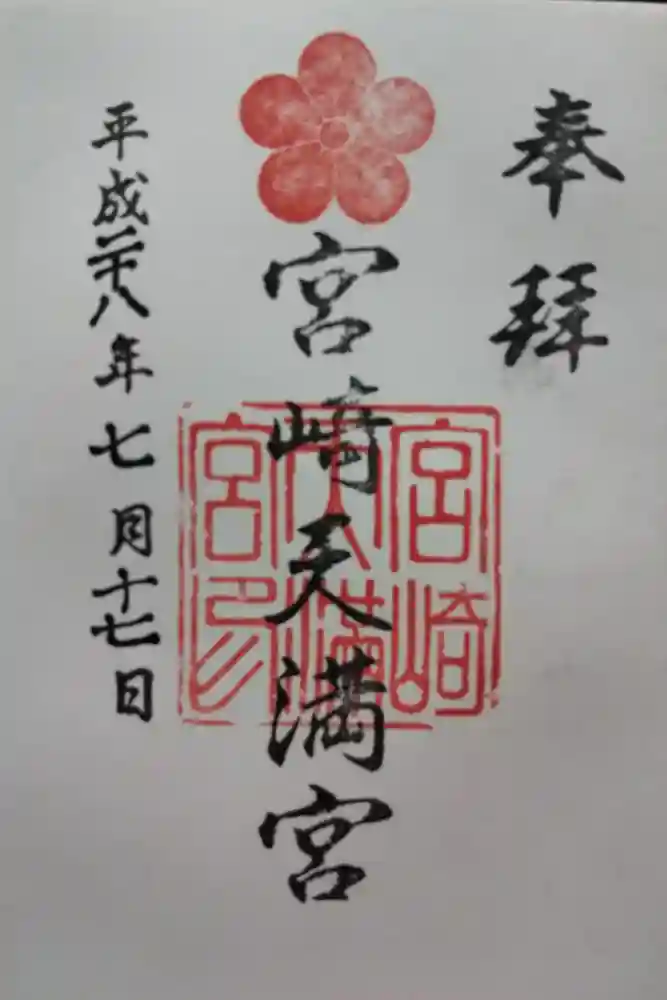 奉拜
宮崎天満宮
宮崎
天満
宮印
平成二十八年七月十七日